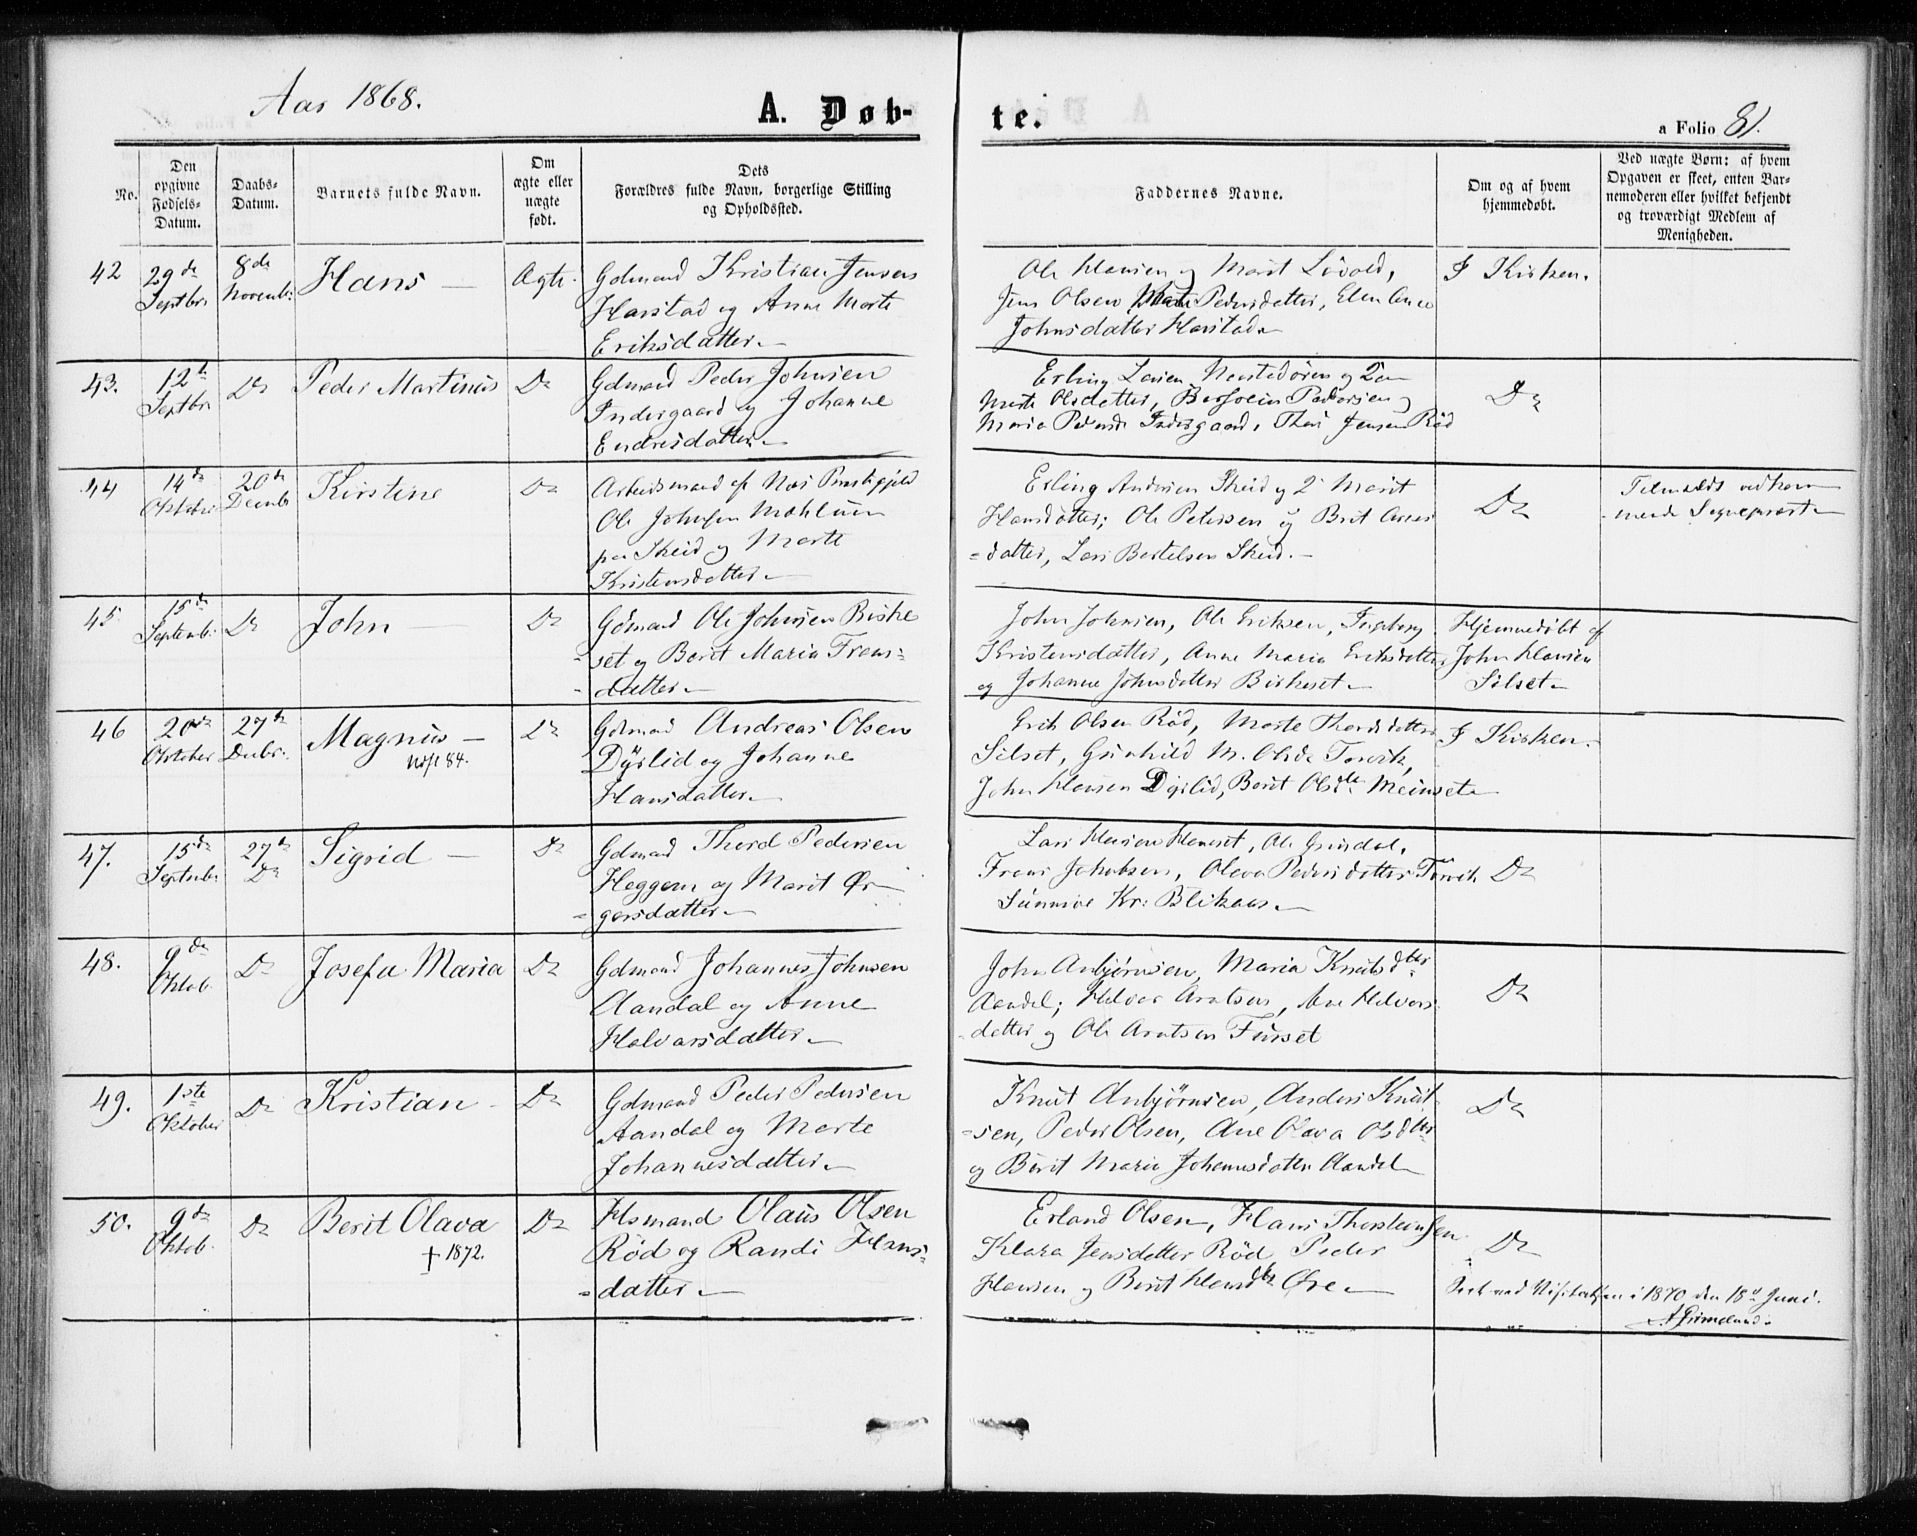 Aar 1868.
A. Døb-
te.
a Folio 81.
No.
Den
opgivne
Fødsels-
Datum.
Daabs-
Datum.
Barnets fulde Navn.
Om
ægte eller
uægte
født.
Dets
Forældres fulde Navn, borgerlige Stilling
og Opholdssted.
Faddernes Navne.
Om og af hvem
hjemmedøbt.
Ved uægte Børn: af hvem
Opgaven er skeet, enten Bar-
nemoderen eller hvilket bekjendt
og troværdigt Medlem af
Menigheden.
42
29de
Septbr
8de
Novemb:
Hans —
Ægte.
Gdmand Kristian Jensen
Harstad og Anne Marte
Eriksdatter
Ole Hansen og Marit Lövold,
Jens Olsen Marte Pedersdatter, Elen Anne
Johnsdatter Harstad
I Kirken.
43.
12te
Septbr
Do
Peder Martinus
Do
Gdmand Peder Johnsen
Indergaard og Johanne
Endresdatter
Erling Larsen
Marte Olsdatter, Bersvein Pedersen og
Maria Indergaard, Jensen Röd
Do
44
14de
Oktober
20de
Decmb
Kirstine
Do
Arbeidsmand af Næs Præstegjeld
Ole Johnsen Mæhlum
paa Skeid og Marte
Kristensdatter
Erling Andersen Skeid og 2 Marit
Hansdatter; Ole Petersen og Brit Arnes
=datter, Lars Bertelsen Skeid.
Do
Tilmeldt vedkom
mende Sogneprest
45
15de
Septemb:
Do
John
Do
Gdmand Ole Johnsen Birke
=set og Berit Maria Frans:
=datter
John Johnsen, Ole Eriksen, Ingeborg
Kristensdatter, Anne Maria Eriksdatter
og Johanne Johnsdatter Birkeset
Hjemmedøbt af
John Hansen
Silset
46
20de
Oktober
27de
Decbr.
Magnus —
Do
Gdmand Andreas Olsen
Dyrlid og Johanne
Hansdatter
Erik Olsen Röd, Marte Thordsdatter
Silset, Gunhild M. Olsdr Torvik,
John Hansen Dyrlid, Berit Olsdtr Meinset
I Kirken.
47.
15de
Septmbr
27de
Do
Sigrid —
Do
Gdmand Thord Pedersen
Heggem og Marit Ør
=gersdatter
Lars Hansen, Ole Grindal,
Frans Jakobsen, Olava Pedersdatter Torvik
Sünnive Kr: Blikaas
Do
48.
9de
Oktob.
Do
Josefa Maria
Do
Gdmand Johannes Johnsen
Aandal og Anne
Halvarsdatter
John Anbjørnsen, Maria Knutsdtr
Aandal; Halvar Arntsen, Ane Halvars
=datter og Ole Arntsen Furset
Do
49.
1ste
Oktober
Do
Kristian
Do
Gdmand Peder Pedersen
Aandal og Marte
Johannesdatter
Knut Anbjørnsen, Anders Knut
=sen, Peder Olsen, Ane Olava Olsdtr
og Berit Maria Johannesdatter Aandal
Do
50.
9de
Oktob.
Do
Berit Olava
† 1872.
Do
Hsmand Olaus Olsen
Röd og Randi Hans
=datter
Erland Olsen, Hans Thorsteinsen
Klara Jensdatter Röd Peder
Hansen og Berit Hansdtr Øre
Do
Seet ved Visitatsen i 1870 den 18de Juni.
A Grimelund